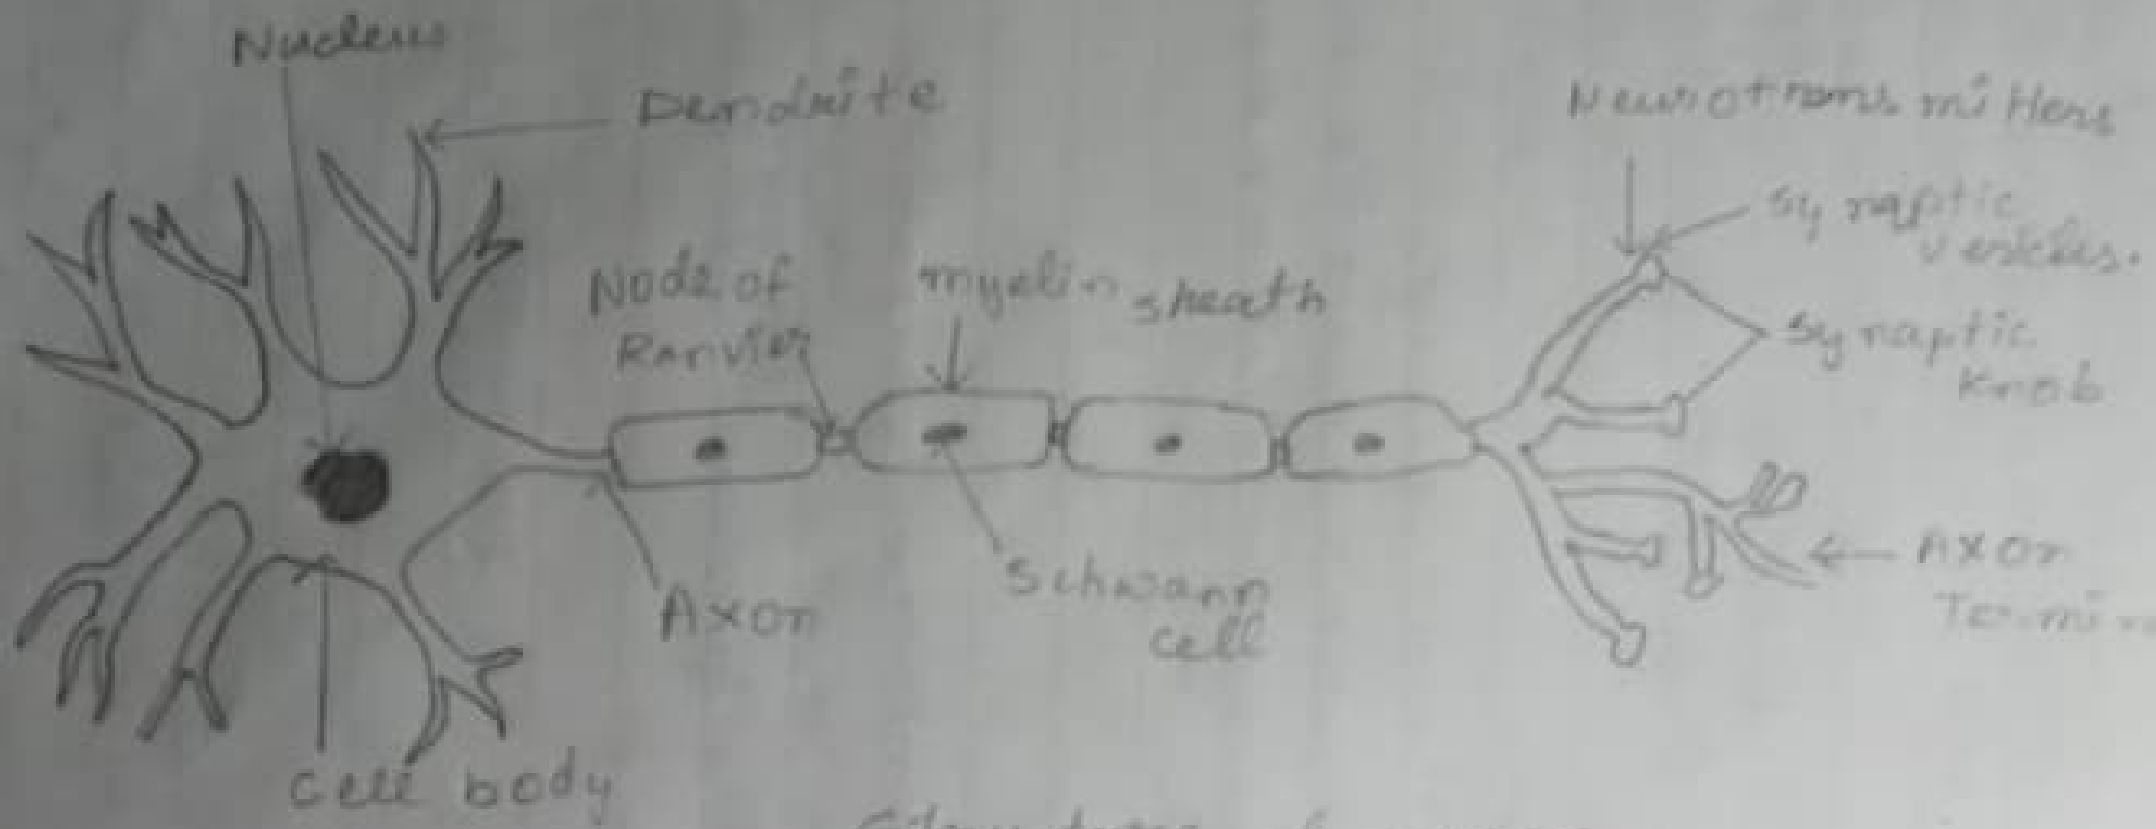 Nucleus
Dendrite
Neurotransmitters
Synaptic
vesicles.
Node of
Ranvier
myelin sheath
Synaptic
Knob
Axon
Schwann
cell
Axon
Cell body